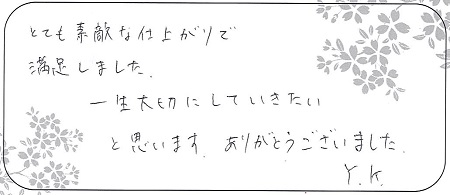 とても素敵な仕上がりで
満足しました.
一生大切にしていきたい
と思います. ありがとうございました.
Y.K.